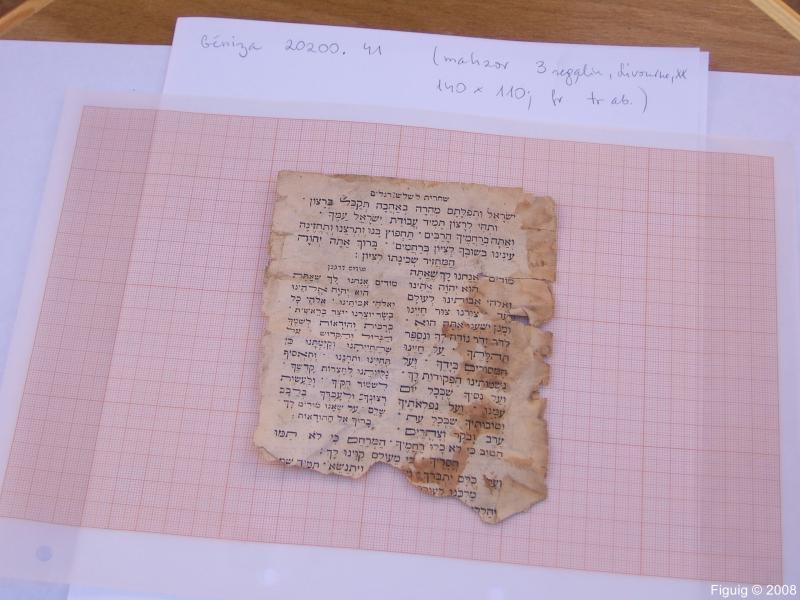 Géniza 20200. 41 (mahzor 3 regalim, Livourne, XX
140 × 110; fr tr ab.)
שחרית לשלש רגלים
ישראל ותפלתם מהרה באהבה תקבל ברצון
ותהי לרצון תמיד עבודת ישראל עמך
ואתה ברחמיך הרבים תחפוץ בנו ותרצנו ותחזינה
עינינו בשובך לציון ברחמים ברוך אתה יהוה
המחזיר שכינתו לציון :
מודים אנחנו לך שאתה
הוא יהוה אלהינו
ואלהי אבותינו לעולם
צורנו צור חיינו
ומגן ישענו אתה הוא
לדר ודר נודה לך ונספר
תהלתך על חיינו
המסורים בידך ועל
נשמותינו הפקודות לך
ועל נסיך שבכל יום
עמנו ועל נפלאתיך
וטובותיך שבכל עת
ערב ובקר וצהרים
מודים דרבנן
מודים אנחנו לך שאתה
הוא יהוה אלהינו
ואלהי אבותינו אלהי כל
בשר יוצרנו יוצר בראשית
ברכות והודאות לשמך
הגדול והקדוש על
שהחייתנו וקיימתנו כן
תחיינו ותחננו ותאסוף
גליותנו לחצרות קדשך
לשמור חקיך ולעשות
רצונך ולעבדך בלבב
שלם על שאנו מודים לך
ברוך אל ההודאות :
הטוב כי לא כלו רחמיך המרחם כי לא תמו
חסדיך כי מעולם קוינו לך
ועל כלם יתברך ויתנשא תמיד שמ
מלכנו לעולם
Figuig © 2008